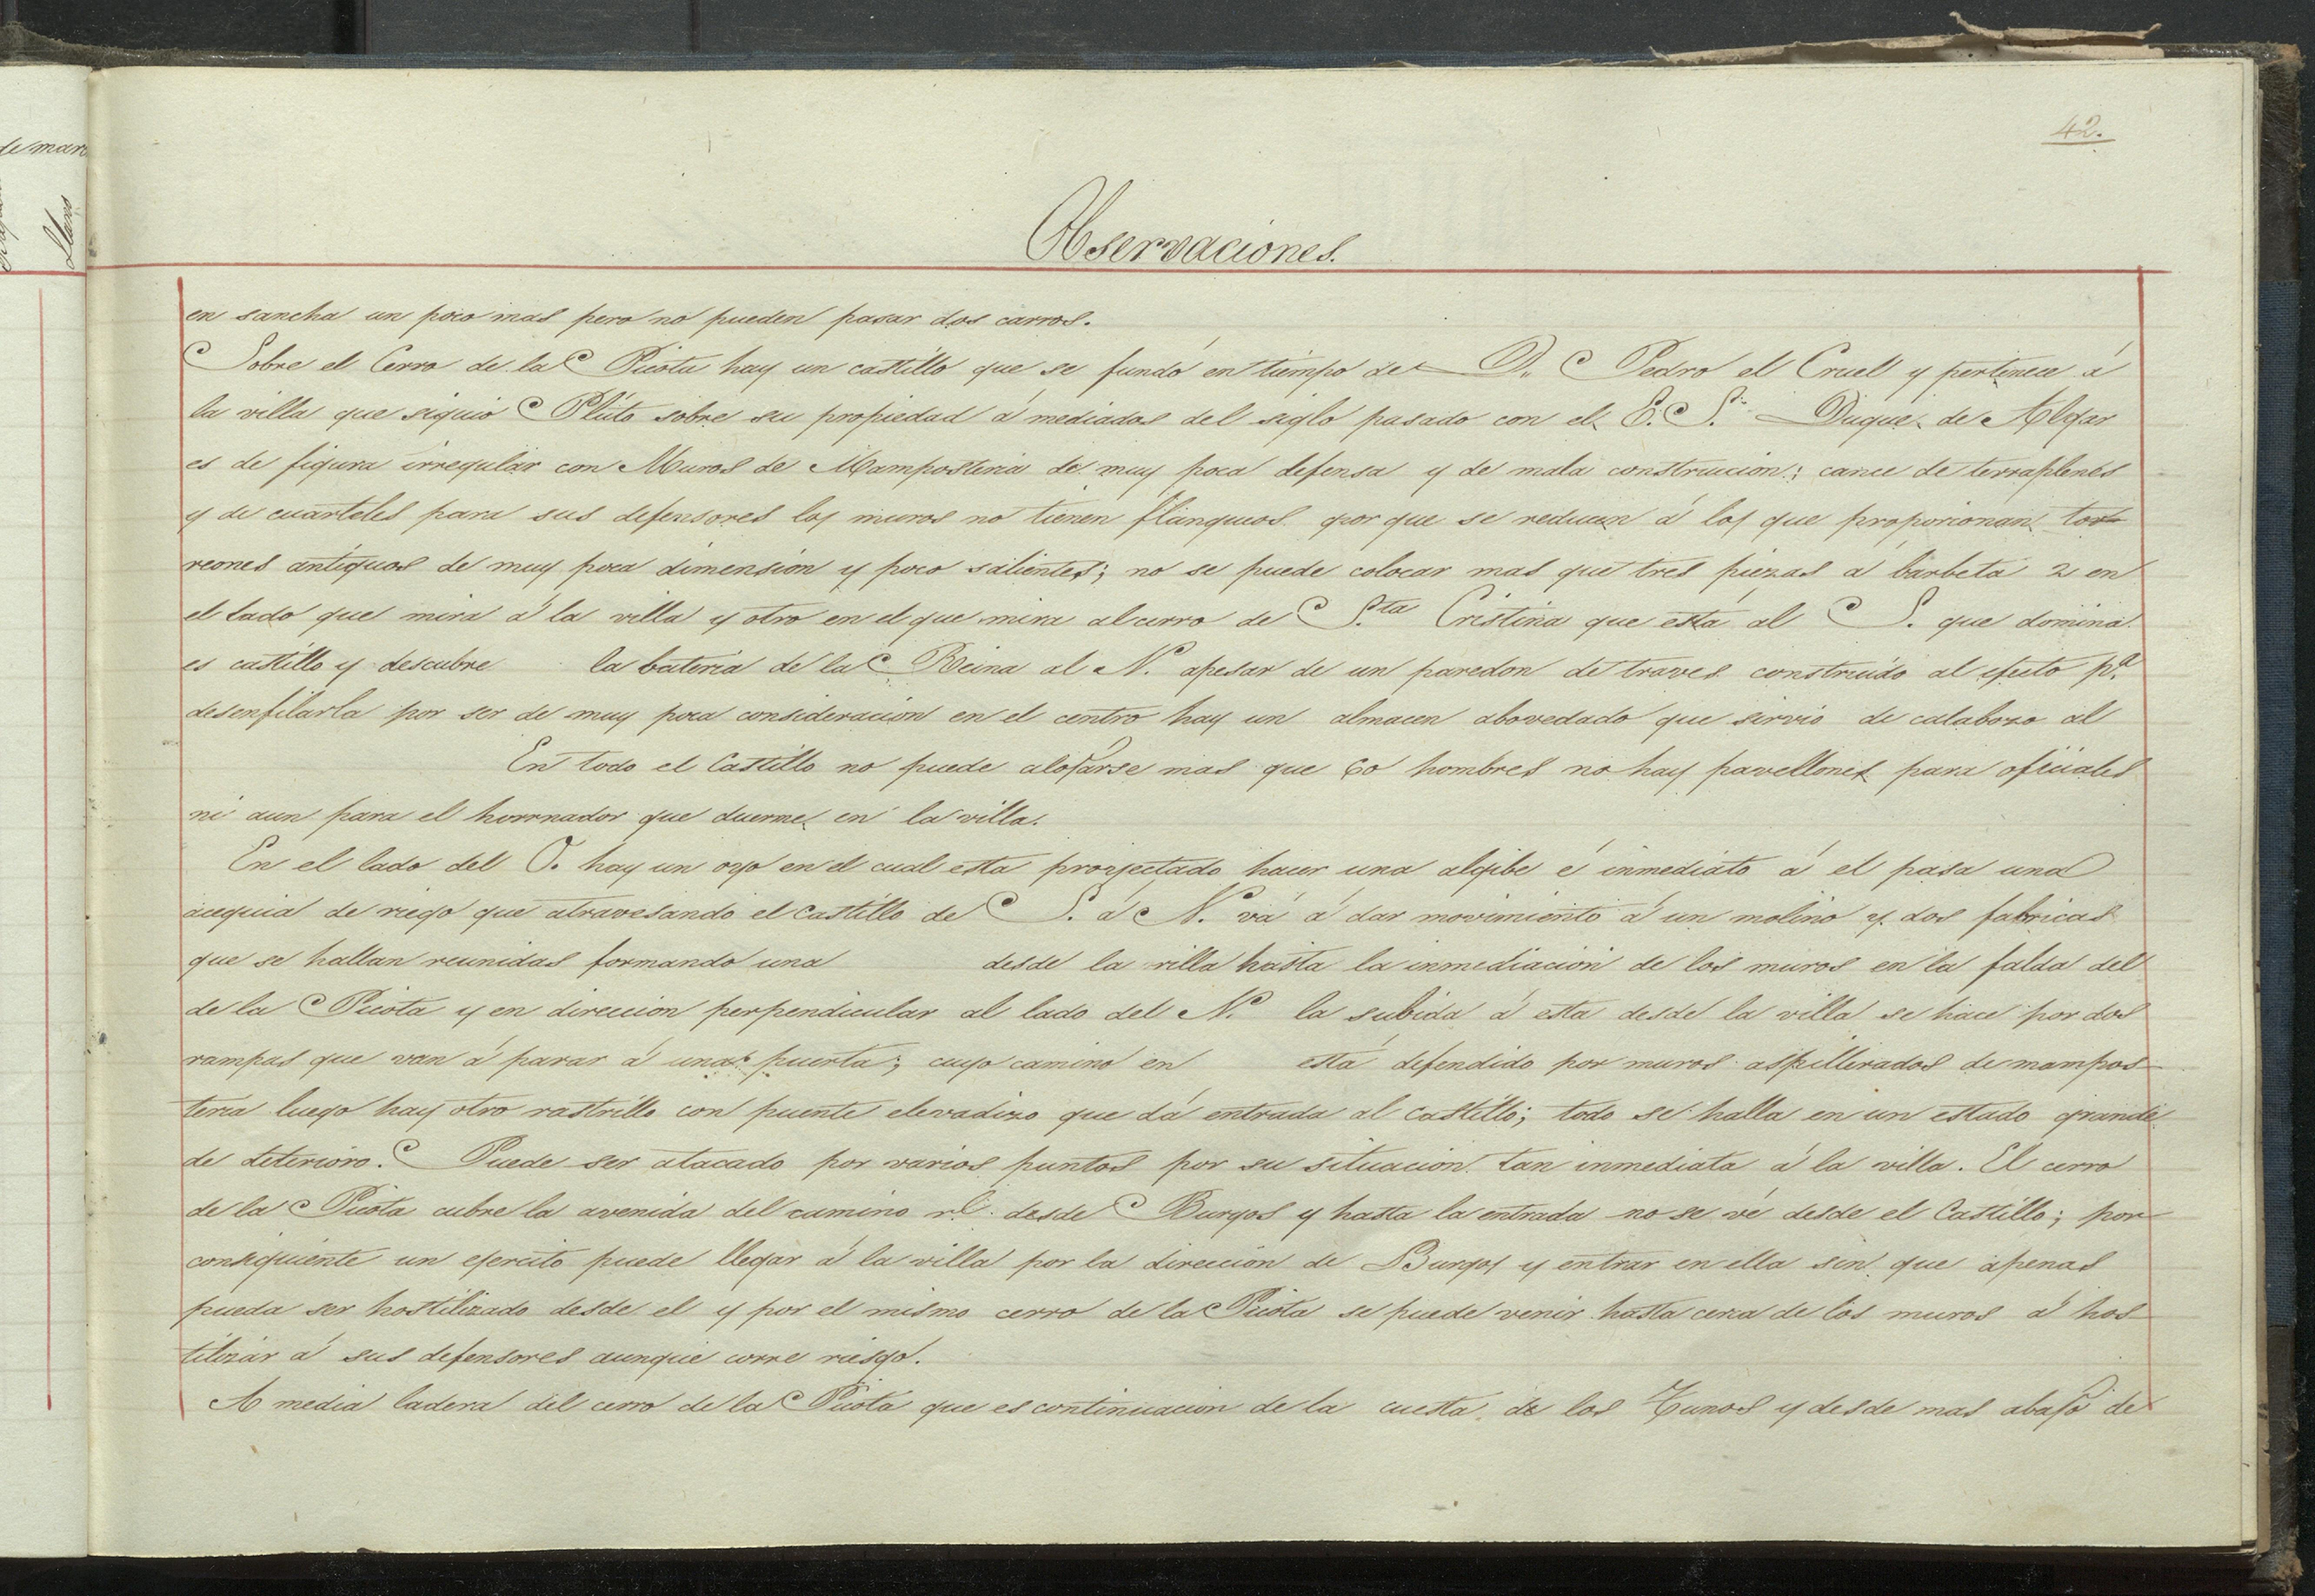 de mar
Llano
42.
Observaciones.
en sancha un poco mas pero no pueden pasar dos carros.
Sobre el Cerro de la Picota hay un castillo que se fundó en tiempo de D.n Pedro el Cruel y pertenece á
la villa que siguió Pluto sobre su propiedad á mediados del siglo pasado con el E. S.r Duque de
es de figura irregular con Muros de Mamposteria de muy poca defensa y de mala construccion; carece de terraplenes
y de cuarteles para sus defensores los muros no tienen flanqueos por que se reducen á los que proporionan tor-
reones antiguos de muy poca dimension y poco salientes; no se puede colocar mas que tres piezas á barbeta 2 en
el lado que mira á la villa y otro en el que mira al cerro de S.ta Cristina que está al S. que domina
es castillo y descubre la bateria de la Reina al N. apesar de un paredon de traves construido al efecto p.a
desenfilarla por ser de muy poca consideracion en el centro hay un almacen abovedado que sirvió de calabozo al
En todo el Castillo no puede alojarse mas que 60 hombres no hay pavellones para oficiales
ni aun para el hovrnador que duerme en la villa.
En el lado del O. hay un oyo en el cual esta proyectado hacer una algibe é inmediato á el pasa una
acequia de riego que atravesando el castillo de S. á N. vá á dar movimiento á un molino y dos fabricas
que se hallan reunidas formando una desde la villa hasta la inmediacion de los muros en la falda del
de la Picota y en direccion perpendicular al lado del N. la subida á esta desde la villa se hace por dos
rampas que van á parar á una puerta; cuyo camino en está defendido por muros aspillerados de mampos-
teria luego hay otro rastrillo con puente elevadizo que dá entrada al castillo; todo se halla en un estado grande
de deterioro. Puede ser atacado por varios puntos por su situacion tan inmediata á la villa. El cerro
de la Picota cubre la avenida del camino r.l desde Burgos y hasta la entrada no se vé desde el Castillo; por
consiguiente un ejercito puede llegar á la villa por la direccion de Burgos y entrar en ella sin que apenas
pueda ser hostilizado desde el y por el mismo cerro de la Picota se puede venir hasta cerca de los muros á hos-
tilizar á sus defensores aunque corre riesgo.
A media ladera del cerro de la Picota que es continuacion de la cuesta de los y desde mas abajo de